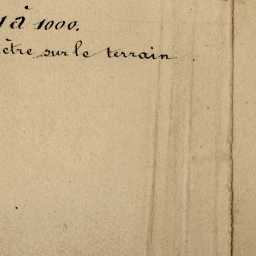 à 1000.
sur le terrain